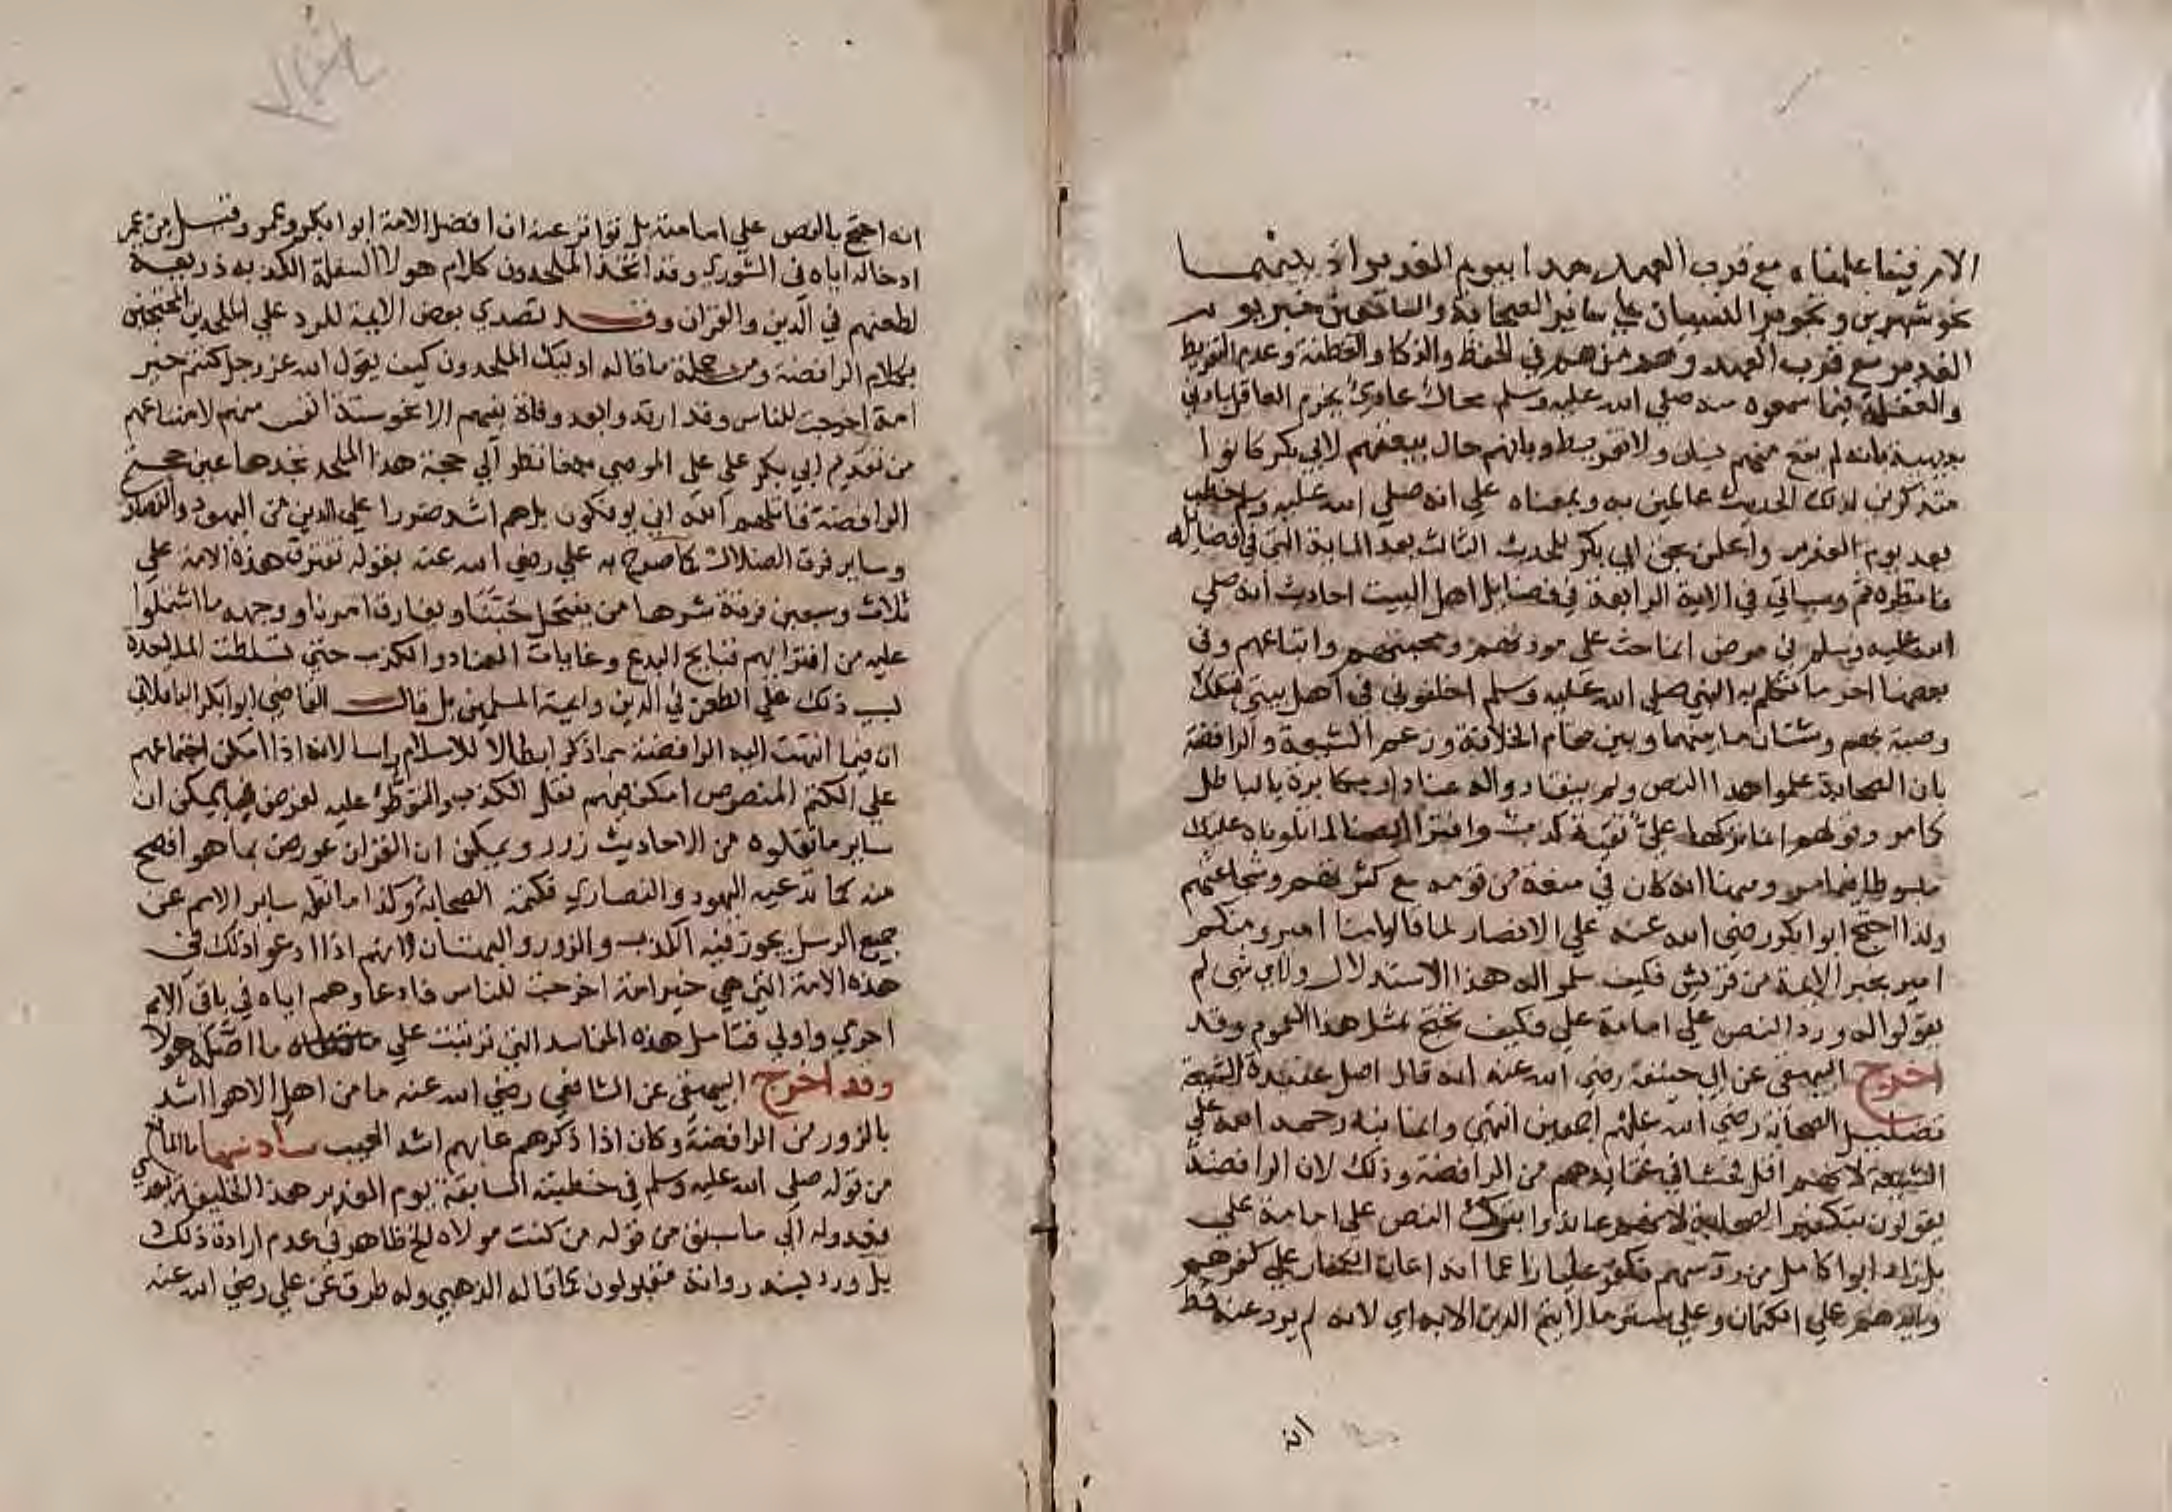 الامر فيما علمناه مع قرب العهد جدا بيوم الغدير اذ بينهما
نحو شهرين وتجويز النسيان علي ساير الصحابة والسامعين خبر يوم
الغدير مع قرب العهد وهم من هم في الحفظ والذكا والفطنة وعدم التفريط
والغفلة فيما سمعوه منه صلي الله عليه وسلم محال عادي يجزم العاقل بادني
بديهية بانه لم يقع منهم نسيان ولا تفريط وبانهم حال بيعتهم لابي بكر كانوا
متذكرين لذلك الحديث عالمين به وبمعناه علي انه صلي الله عليه وسلم خطب
بعد يوم الغدير واعلن بحق ابي بكر للحديث الثالث بعد الماية التي في فضايله
فانظره ثم وسياتي في الاية الرابعة في فضايل اهل البيت احاديث انه صلي
الله عليه وسلم في مرض انما حث علي مودتهم ومحبتهم واتباعهم وفي
بعضها اخر ما تكلم به النبي صلي الله عليه وسلم اخلفوني في اهل بيتي فتلك
وصية بهم وشتان ما بينهما وبين مقام الخلافة وزعم الشيعة والرافضة
بان الصحابة علموا هذا النص ولم ينقادوا له عناد ومكابرة بالباطل
كما مر وقولهم انما تركها علي تقية كذب وافترا ايضا لما تلوناه عليك
مبسوطا فيما مر ومنها انه كان في منعة من قومه مع كثرتهم وشجاعتهم
ولذا احتج ابوا بكر رضي الله عنه علي الانصار لما قالوا منا امير ومنكم
امير بخبر الايمة من قريش فكيف سلموا له هذا الاستدلال ولاي شي لم
يقولوا له ورد النص علي امامة علي فكيف تحتج بمثل هذا العموم وقد
اخرج البيهقي عن ابي حنيفة رضي الله عنه انه قال اصل عقيدة الشيعة
تضليل الصحابة رضي الله عنهم اجمعين انتهي وانما نبه رحمه الله علي
الشيعة لانهم اقل فحشا في عقايدهم من الرافضة وذلك لان الرافضة
يقولون بتكفير الصحابة لانهم عاندوا بترك النص علي امامة علي
بل زاد ابوا كامل من رؤسهم فكفر عليا زاعما انه اعان الكفار علي كفرهم
وايدهم علي الكتمان وعلي ستر ما لا يتم الدين الا به اي لانه لم يرد عنه قط
انه
انه احتج بالنص علي امامته بل تواتر عنه ان افضل الامة ابوا بكر وعمر وقبل من عمر
ادخاله اياه في الشوري وقد اتخذ الملحدون كلام هولا السفلة الكذبة ذريعة
لطعنهم في الدين والقران وقد تصدي بعض الايمة للرد علي الملحدين المحتجين
بكلام الرافضة ومن جملة ما قاله اوليك الملحدون كيف يقول الله عز وجل كنتم خير
امة اخرجت للناس وقد ارتدوا بعد وفاة نبيهم الا نحو ستة انفس منهم لامتناعهم
من تقديم ابي بكر علي علي الموصي به فانظر الي حجة هذا الملحد تجدها عين حجة
الرافضة قاتلهم الله اني يوفكون بل هم اشد ضررا علي الدين من اليهود والنصاري
وساير فرق الضلال كما صرح به علي رضي الله عنه بقوله تفترق هذه الامة علي
ثلاث وسبعين فرقة شرها من ينتحل حبنا ويفارق امرنا ووجهه ما اشتملوا
عليه من افترايهم قبايح البدع وغايات العناد والكذب حتي تسلطت الملاحدة
بسبب ذلك علي الطعن في الدين وايمة المسلمين بل قال القاضي ابوا بكر الباقلاني
ان فيما انتهت اليه الرافضة مما ذكر ابطالا للاسلام راسا لانه اذا امكن اجتماعهم
علي الكتم المنصوص امكن فيهم نقل الكذب والتوطؤ عليه لغرض فيمكن ان
ساير ما نقلوه من الاحاديث زور ويمكن ان القران عورض بما هو افصح
منه كما تدعيه اليهود والنصاري فكتمه الصحابة وكذا ما نقله ساير الامم عن
جميع الرسل يجوز فيه الكذب والزور والبهتان لانهم اذا ادعوا ذلك في
هذه الامة التي هي خير امة اخرجت للناس فادعاوهم اياه في باقي الامم
احري واولي فتامل هذه المفاسد التي ترتبت علي ما اصله هولا
وقد اخرج البيهقي عن الشافعي رضي الله عنه ما من اهل الاهوا اشد
بالزور من الرافضة وكان اذا ذكرهم عابهم اشد العيب سادسها ما المانع
من قوله صلي الله عليه وسلم في خطبته السابقة يوم الغدير هذا الخليفة بعدي
فعدوله الي ما سبق من قوله من كنت مولاه الخ ظاهر في عدم ارادة ذلك
بل ورد بسند رواته مقبولون كما قاله الذهبي وله طرق عن علي رضي الله عنه